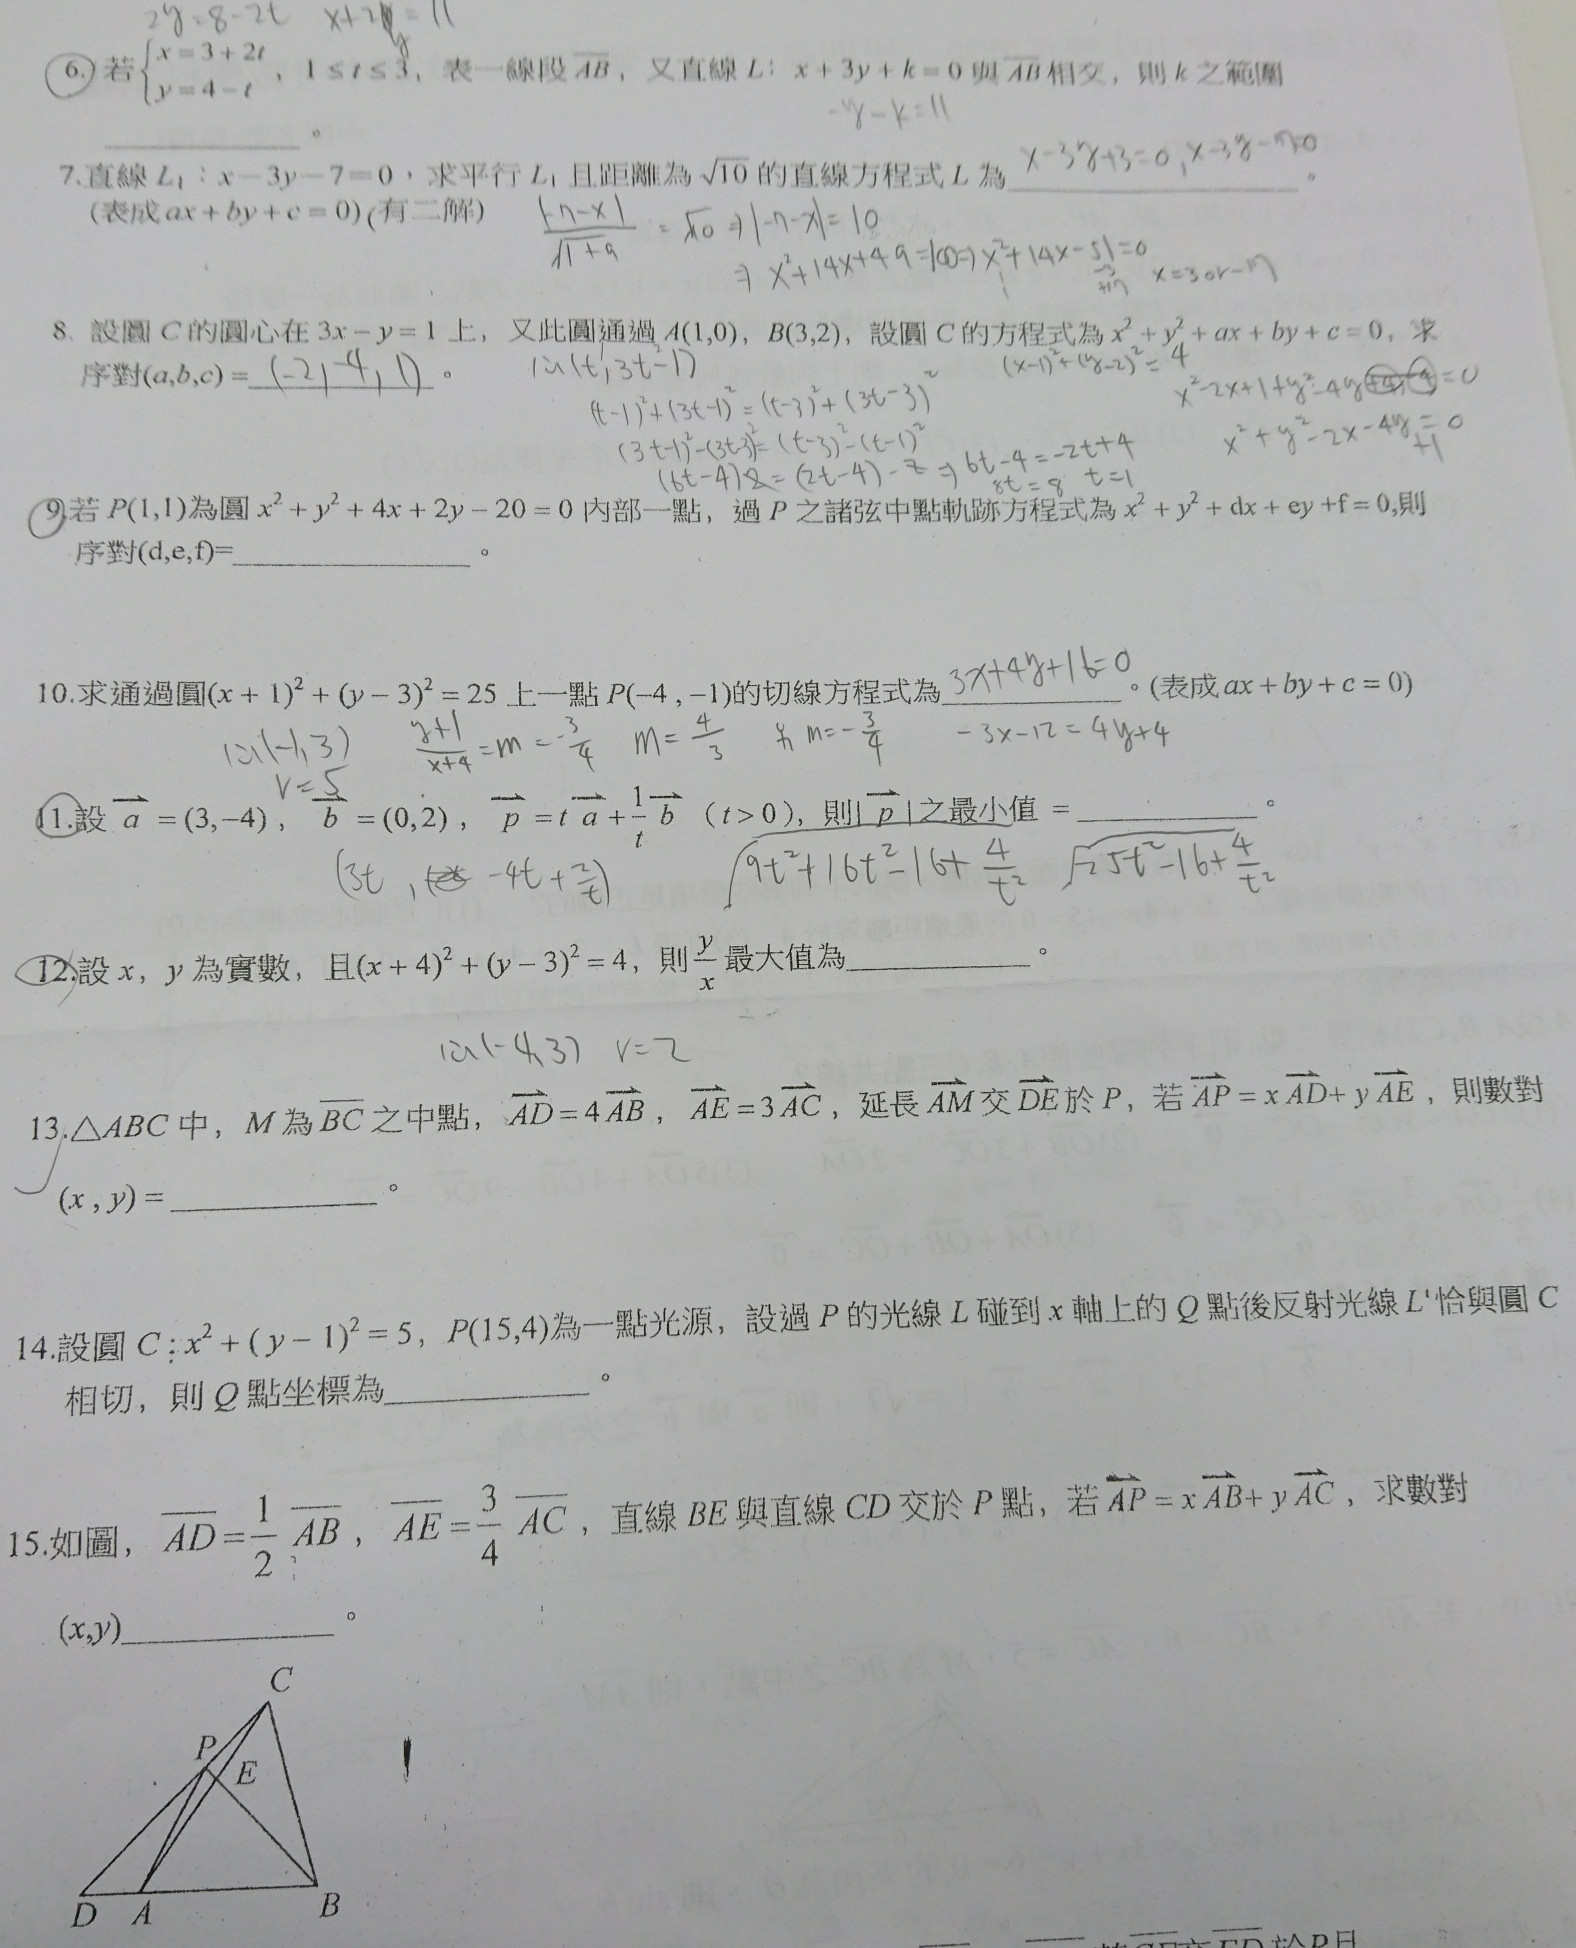 2y=8-2t x+2y=11
6.若{x=3+2t y=4-t，1≤t≤3，表一線段AB，又直線L：x+3y+k=0與AB相交，則k之範圍
-y-k=11
____________。
7.直線L₁：x-3y-7=0，求平行L₁且距離為√10的直線方程式L為 x-3y+3=0,x-3y-17=0 。
(表成ax+by+c=0)(有二解)
|-7-x|/√1+9 = √10 ⇒|-7-x|=10
⇒ x²+14x+49=100⇒x²+14x-51=0
x=3 or -17
8. 設圓C的圓心在3x-y=1上，又此圓通過A(1,0)，B(3,2)，設圓C的方程式為x²+y²+ax+by+c=0，求
序對(a,b,c)= (-2,-4,1) 。
心(t,3t-1)
(x-1)²+(y-2)²=4
(t-1)²+(3t-1)²=(t-3)²+(3t-3)²
(3t-1)²-(3t-3)²=(t-3)²-(t-1)²
x²+y²-2x-4y+1=0
8t=8 t=1
9.若P(1,1)為圓x²+y²+4x+2y-20=0內部一點，過P之諸弦中點軌跡方程式為x²+y²+dx+ey+f=0,則
序對(d,e,f)=____________。
10.求通過圓(x+1)²+(y-3)²=25上一點P(-4,-1)的切線方程式為 3x+4y+16=0 。(表成ax+by+c=0)
心(-1,3) y+1/x+4=m=-3/4 m=4/3 m=-3/4 -3x-12=4y+4
r=5
11.設a⃗=(3,-4)，b⃗=(0,2)，p⃗=t a⃗+1/t b⃗（t>0），則|p⃗|之最小值 =____________。
(3t, -4t+2/t) √9t²+16t²-16+4/t² √25t²-16+4/t²
12.設x，y為實數，且(x+4)²+(y-3)²=4，則y/x最大值為____________。
心(-4,3) r=2
13.△ABC中，M為BC之中點，AD⃗=4AB⃗，AE⃗=3AC⃗，延長AM⃗交DE⃗於P，若AP⃗=xAD⃗+yAE⃗，則數對
(x,y)=____________。
14.設圓C：x²+(y-1)²=5，P(15,4)為一點光源，設過P的光線L碰到x軸上的Q點後反射光線L'恰與圓C
相切，則Q點坐標為____________。
15.如圖，AD=1/2 AB，AE=3/4 AC，直線BE與直線CD交於P點，若AP⃗=xAB⃗+yAC⃗，求數對
(x,y)____________。
C
P
E
D A B